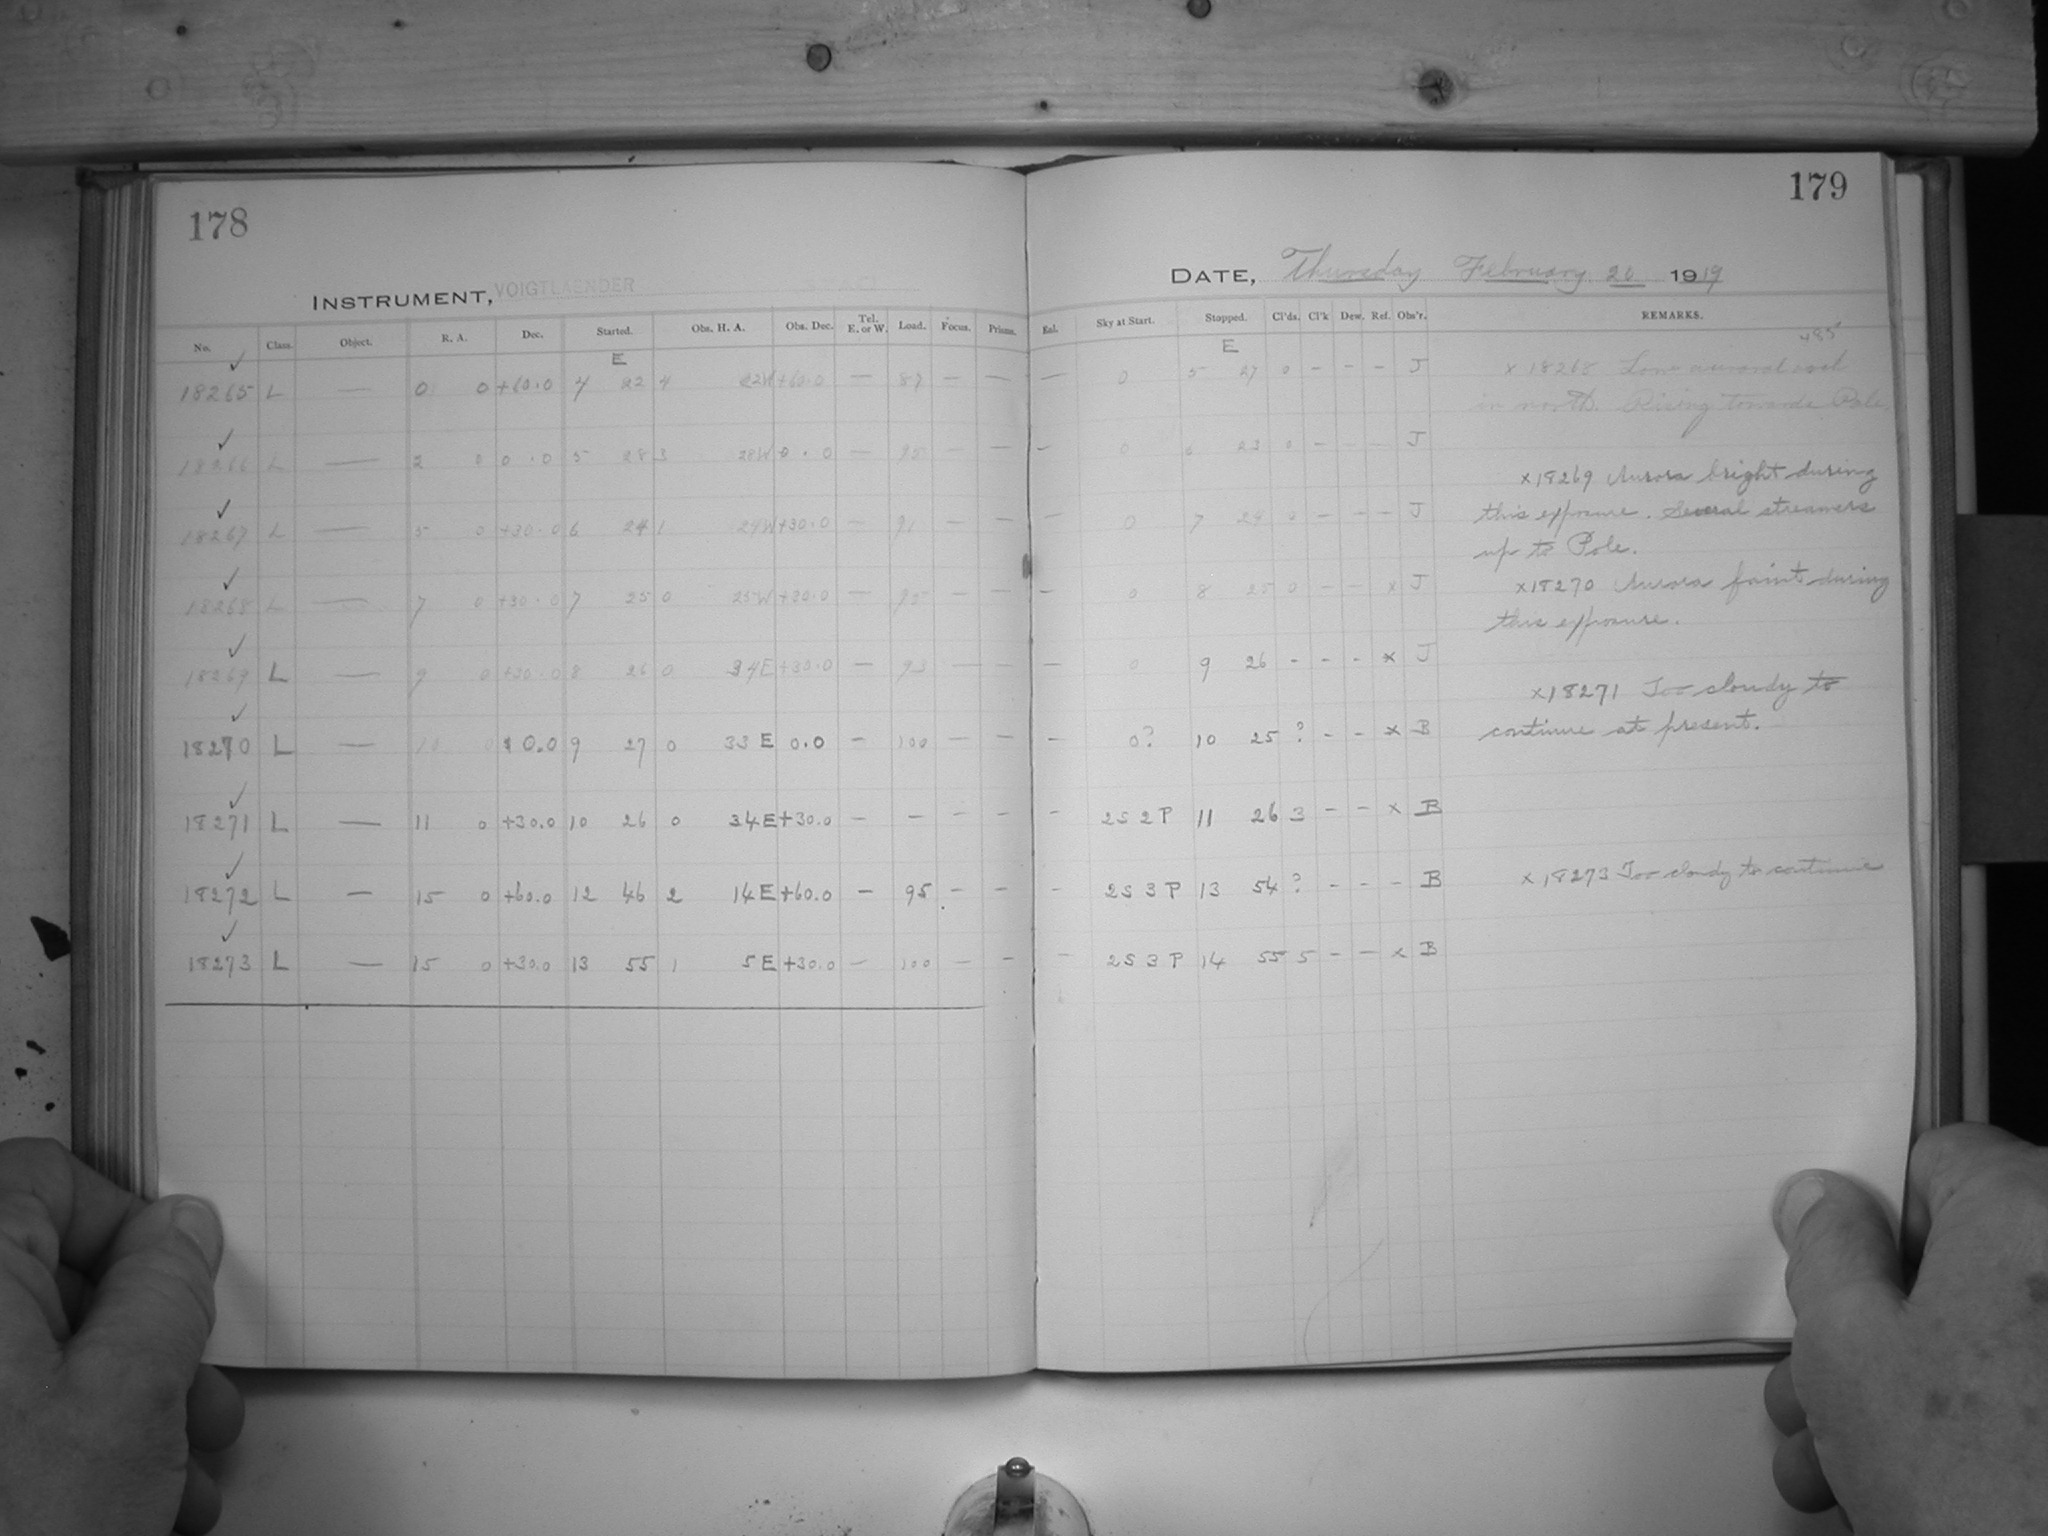 178
INSTRUMENT, VOIGTLAENDER
No. Class. Object. R. A. Dec. Started. Obs. H. A. Obs. Dec. Tel. E. or W. Load. Focus. Prisms.
E
✓
18265 L — 0 0 +60.0 4 22 4 22W +60.0 — 87 — —
✓
18266 L — 2 0 0.0 5 28 3 28W 0.0 — 95 — —
✓
18267 L — 5 0 +30.0 6 24 1 24W +30.0 — 91 — —
✓
18268 L — 7 0 +30.0 7 25 0 25W +30.0 — 95 — —
✓
18269 L — 9 0 +30.0 8 26 0 34E +30.0 — 93 — —
✓
18270 L — 10 0 0.0 9 27 0 33 E 0.0 — 100 — —
✓
18271 L — 11 0 +30.0 10 26 0 34E +30.0 — — — —
✓
18272 L — 15 0 +60.0 12 46 2 14E +60.0 — 95 — —
✓
18273 L — 15 0 +30.0 13 55 1 5E +30.0 — 100 — —
179
DATE, Thursday February 20 1919
Enl. Sky at Start. Stopped. Cl'ds. Cl'k Dew. Ref. Obs'r. REMARKS.
485
E
— 0 5 27 0 - - - J
— 0 6 23 0 - - - J
— 0 7 24 0 - - - J
— 0 8 25 0 - - x J
— 0 9 26 - - - x J
— 0? 10 25 ? - - x B
- 2S 2P 11 26 3 - - x B
- 2S 3P 13 54 ? - - - B
- 2S 3P 14 55 5 - - x B
x 18265 Low auroral
in north. Rising towards Pole
x18269 Aurora bright during
this exposure. Several streamers
up to Pole.
x18270 Aurora faint during
this exposure.
x18271 Too cloudy to
continue at present.
x 18273 Too cloudy to continue